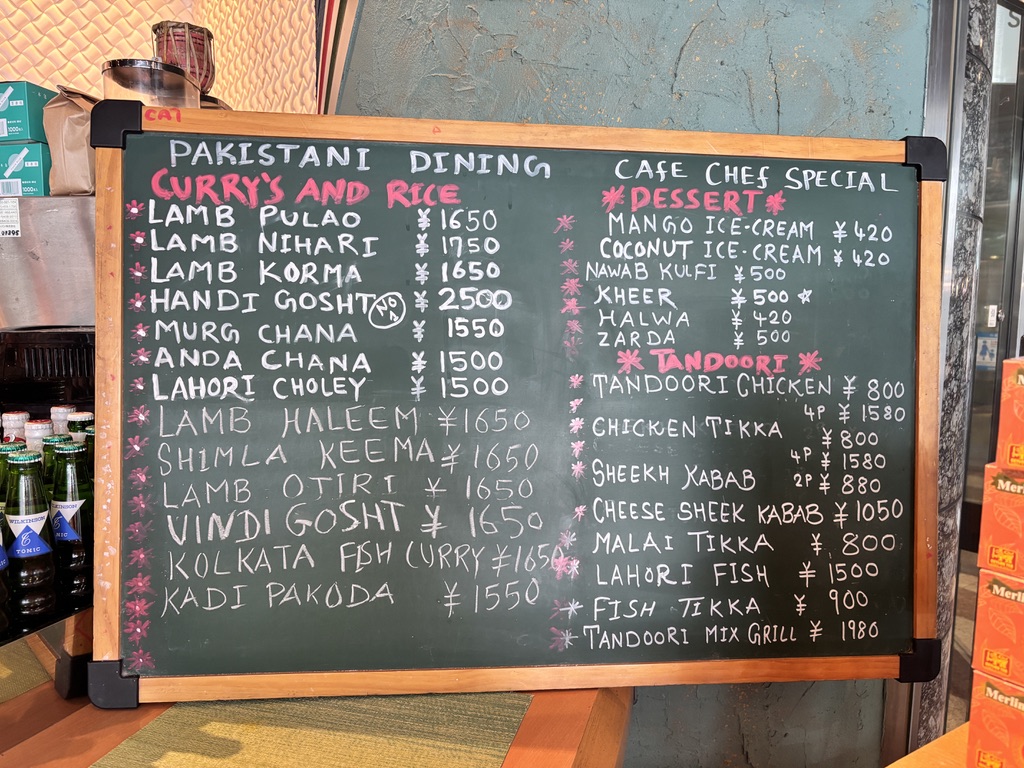 CAI
PAKISTANI DINING
CURRY'S AND RICE
LAMB PULAO ¥ 1650
LAMB NIHARI ¥ 1750
LAMB KORMA ¥ 1650
HANDI GOSHT ¥ 2500
MURG CHANA ¥ 1550
ANDA CHANA ¥ 1500
LAHORI CHOLEY ¥ 1500
LAMB HALEEM ¥ 1650
SHIMLA KEEMA ¥ 1650
LAMB OJIRI ¥ 1650
VINDI GOSHT ¥ 1650
KOLKATA FISH CURRY ¥ 1650
KADI PAKODA ¥ 1550
CAFE CHEF SPECIAL
DESSERT
MANGO ICE-CREAM ¥ 420
COCONUT ICE-CREAM ¥ 420
NAWAB KULFI ¥ 500
KHEER ¥ 500
HALWA ¥ 420
ZARDA ¥ 500
TANDOORI
TANDOORI CHICKEN ¥ 800
4P ¥ 1580
CHICKEN TIKKA ¥ 800
4P ¥ 1580
SHEEKH KABAB 2P ¥ 880
CHEESE SHEEK KABAB ¥ 1050
MALAI TIKKA ¥ 800
LAHORI FISH ¥ 1500
FISH TIKKA ¥ 900
TANDOORI MIX GRILL ¥ 1980
WILKINSON
TONIC